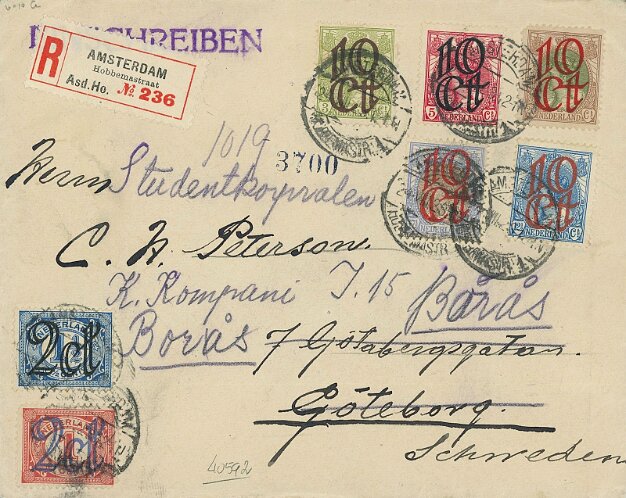 EINSCHREIBEN
R
AMSTERDAM
Hobbemastraat
Asd.Ho. № 236
10 Ct
10 Ct
10 Ct
5
NEDERLAND
1019
3700
10 Ct
10 Ct
NEDERLAND
Herrn Studentkorpralen
C. H. Peterson
K. Kompani I.15 Borås
Borås 7 Götabergsgatan.
Göteborg.
Schweden
NEDERLAND
2 ct
NEDERLAND
2 ct
40592